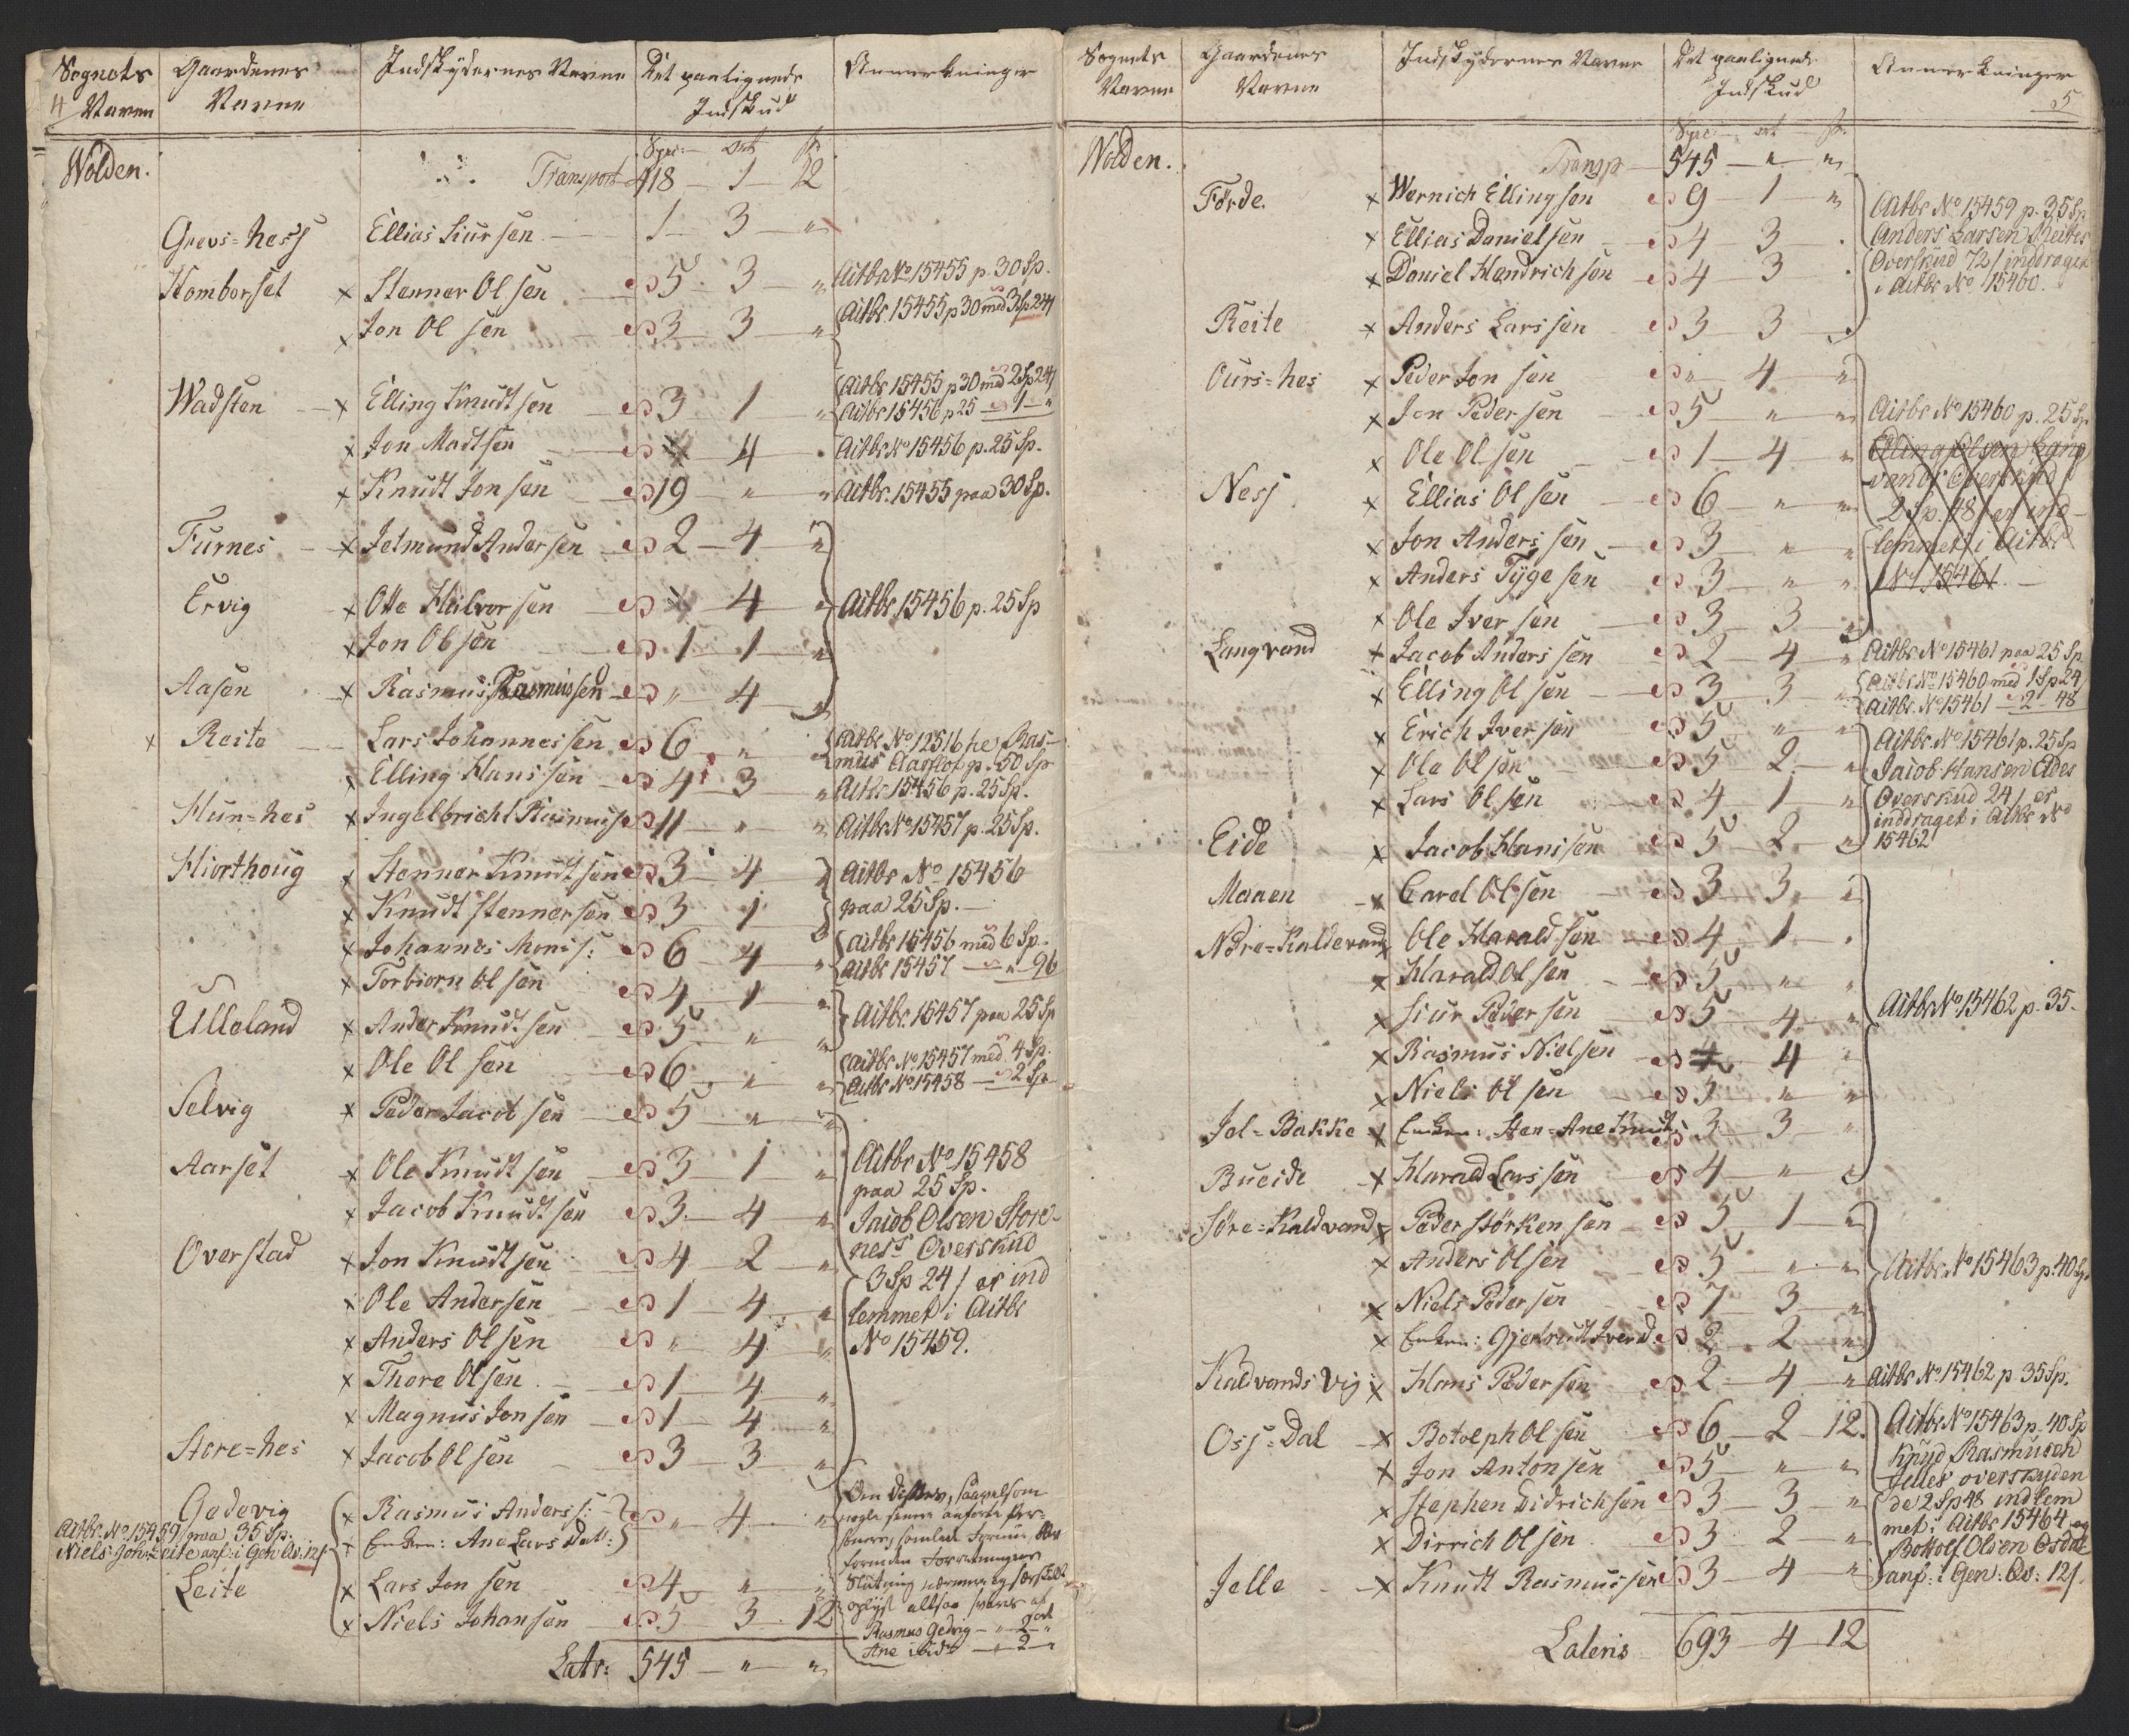 Sognets Gaardenes Indskydernes Navne Det paalignede Anmerkninger
4 Navne Navne Indskud
Spec: ort ß
Wolden. Transport 418 - 1 - 12
Grevs=hess Ellias Siursen 1 - 3 - "
Homborset x Stenner Olsen 5 3 " Aitbr No 15455 p. 30 Sp.
x Jon Olsen 3 - 3 - " Aitbr 15455 p 30 med 3 Sp 24ß
Wadsten x Elling Knudtsen 3 1 " Aitbr 15455 p 30 med 2 Sp 24ß
Aitbr 15456 p 25 - 1 - "
x Jon Madtsen 4 Aitbr No 15456 p. 25 Sp.
x Knudt Jonsen 19 " " Aitbr. 15455 paa 30 Sp.
Furnes x Jetmund Andersen 2 - 4 - "
Ervig x Otte Halvorsen 4 " Aitbr. 15456 p. 25 Sp
x Jon Olsen 1 - 1 "
Aasen x Rasmus Rasmussen " 4 "
x Reite Lars Johannessen 6 " " Aitbr No 12516 he Ras-
mus Aarflot p. 50 Sp
x Elling Hanssen 4 3 " Aitbr 15456 p. 25 Sp.
Hun=hes x Ingelbricht Rasmus 11 " " Aitbr No 15457 p. 25 Sp.
Hiorthoug x Stenner Knudtsen 3 4 Aitbr No 15456
x Knudt Stennersen 3 1 paa 25 Sp.
x Johannes Mons: 6 4 " Aitbr 15456 med 6 Sp.
Aitbr 15457 - " 96
x Torbiorn Olsen 4 1 "
Ulleland x Ander Knudtsen 5 " " Aitbr. 15457 paa 25 Sp
x Ole Olsen 6 " " Aitbr. No 15457 med 4 Sp.
Aitbr No 15458 - 2 Sp
Selvig x Peder Jacobsen 5 " "
Aarset x Ole Knudtsen 3 1 " Aitbr No 15458
paa 25 Sp.
x Jacob Knudtsen 3 4 " Jacob Olsen Store-
ness Overskud
Overstad x Jon Knudtsen 4 2 " 3 Sp 24 ß er ind
x Ole Andersen 1 4 " lemmet i Aitbr
x Anders Olsen " 4 " No 15459.
x Thore Olsen 1 4 "
x Magnus Jonsen 1 4 "
Store=hes x Jacob Olsen 3 3 "
Gedevig x Rasmus Anderss: " 4 " Om disse, saavelsom
nogle senere anførte Per-
Aitbr. No 15459 paa 35 Sp. x Enken: Ane Lars Dat:
Niels Joh: Leite anf: i Gen: Qv: 12ß
Leite x Lars Jonsen 4 " "
x Niels Johansen 5 3 12
Rasmus Gedvig - " 2 "
Ane ibid: - " 2 - "
Latr: 545 - " "
Sognets Gaardenes Indskydernes Navne Det paalignede Anmerkninger
Navne Navne Indskud 5
Spec: ort ß.
Wolden. Transp 545 - " "
Förde x Wernich Ellingsen 9 1 " Aitbr No 15459 p. 35 Sp
x Ellias Danielsen 4 3 . Anders Larsen Reites
x Daniel Hendrichsen 4 3 . Overskud 72 ß inddraget
i Aitbr No 15460.
Reite x Anders Larssen 3 3
Ours=hes x Peder Jonsen " 4 "
x Jon Pedersen 5 " " Aitbr No 15460 p. 25 Sp
x Ole Olsen 1 4 " Elling Olsen Lang
vands Overskud
Ness x Ellias Olsen 6 " " 2 Sp. 48 ß er ind-
x Jon Anderssen 3 " " lemmet i Aitbr
x Anders Tygesen 3 " " No 15461.
x Ole Iversen 3 3 "
Langvand x Jacob Anderssen 2 4 " Aitbr No 15461 paa 25 Sp
x Elling Olsen 3 3 Aitbr. No 15460 med 1 Sp 24
Aitbr. No 15461 - 2 - 48
x Erich Iversen 5 " " Aitbr. No 15461 p. 25 Sp
x Ole Olsen 5 2 " Jacob Hansen Eides
x Lars Olsen 4 1 " Overskud 24 ß er
inddraget i Aitbr No
Eide x Jacob Hanssen 5 2 15462
Manen x Carel Olsen 3 3 "
Nøre=Kaldevand x Ole Haraldsen 4 1 .
x Harald Olsen 5 " "
x Siur Pedersen 5 4 " Aitbr No 15462 p. 35.
x Rasmus Nielsen 4 "
x Niels Olsen 5 " "
Jol=Bakke x Enken: Ane Knudts 3 3 "
Bueide x Harald Larssen 4 "
Søre=Kaldvand x Peder Størkersen 5 1 "
x Anders Olsen 5 " " Aitbr. No 15463 p. 40 Sp
x Niels Pedersen 7 3 "
x Enken: Gjertrudt Iversd. 2 2 "
Kaldvands Vig x Hans Pedersen 2 4 " Aitbr No 15462 p 35 Sp.
Oss=Dal x Botolph Olsen 6 2 12. Aitbr No 15463 p. 40 Sp
x Jon Antonsen 5 " " Knud Rasmusen
Jelles overskyden
x Stephen Didrichsen 3 3 " de 2 Sp 48 indlem
x Dirrich Olsen 3 2 " met i Aitbr 15464 og
Bottolf Olsen Osdal
Jelle x Knudt Rasmussen 3 4 " anf: i Gen: Qv: 12ß.
Lateris 693 - 4 - 12